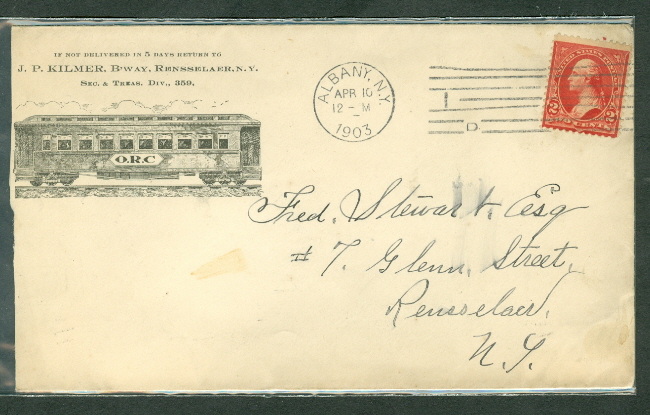 IF NOT DELIVERED IN 5 DAYS RETURN TO
J. P. KILMER, B'WAY, RENSSELAER, N.Y.
SEC. & TREAS. DIV., 359.
O.R.C
ALBANY, N.Y.
APR 10
12 - M
1903
I
D.
2 CENTS 2
Fred. Stewart, Esq
# 7. Glenn, Street,
Rensselaer,
N.Y.